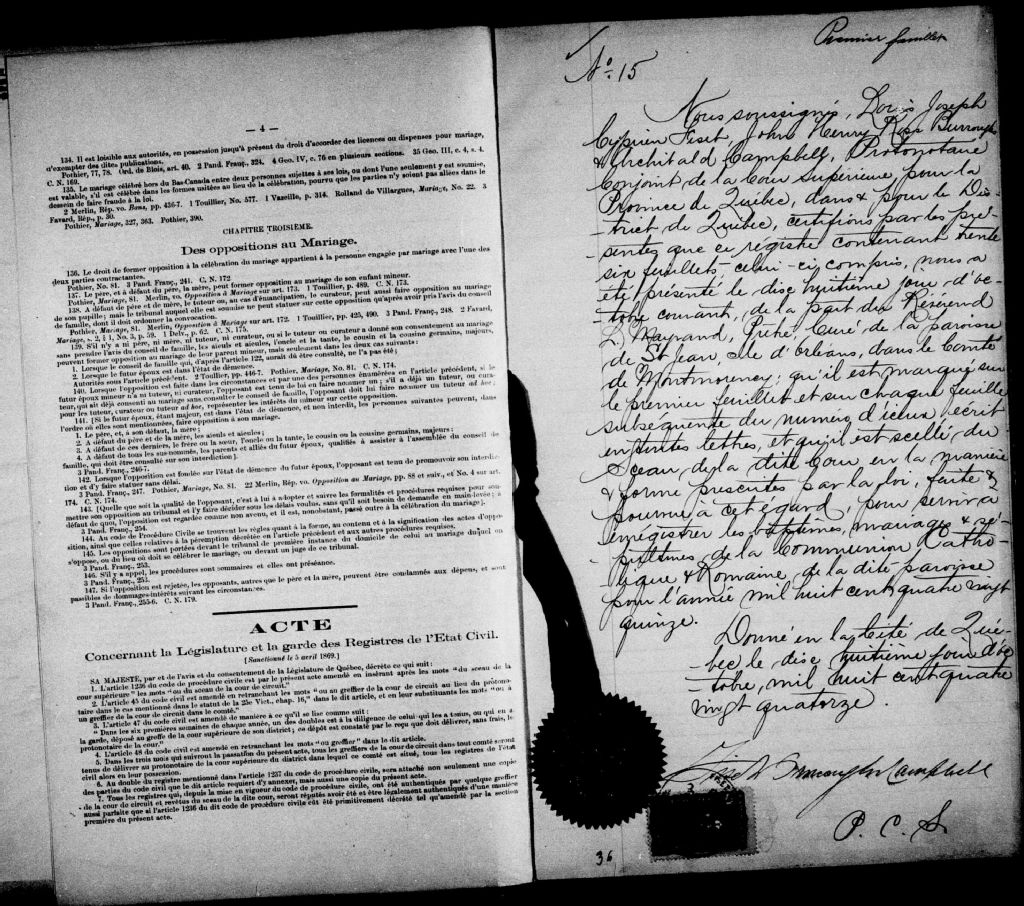 — 4 —
134. Il est loisible aux autorités, en possession jusqu'à présent du droit d'accorder des licences ou dispenses pour mariage,
d'exempter des dites publications.
Pothier, 77, 78. Ord. de Blois, art. 40. 2 Pand. Franç., 324. 4 Geo. IV, c. 76 en plusieurs sections. 35 Geo. III, c. 4, s. 4.
C. N. 169.
135. Le mariage célébré hors du Bas-Canada entre deux personnes sujettes à ses lois, ou dont l'une seulement y est soumise,
est valable, s'il est célébré dans les formes usitées au lieu de la célébration, pourvu que les parties n'y soient pas allées dans le
dessein de faire fraude à la loi.
2 Merlin, Rép. vo. Bans, pp. 436-7. 1 Touillier, No. 577. 1 Vazeille, p. 314. Rolland de Villargues, Mariage, No. 22. 3
Favard, Rép., p. 30.
Pothier, Mariage, 327, 363. Pothier, 390.
CHAPITRE TROISIÈME.
Des oppositions au Mariage.
136. Le droit de former opposition à la célébration du mariage appartient à la personne engagée par mariage avec l'une des
deux parties contractantes.
Pothier, No. 81. 3 Pand. Franç., 241. C. N. 172
137. Le père, et à défaut du père, la mère, peut former opposition au mariage de son enfant mineur.
Pothier, Mariage, 81. Merlin, vo. Opposition à Mariage sur art. 173. 1 Touillier, p. 489. C. N. 173.
138. A défaut de père et de mère, le tuteur ou, au cas d'émancipation, le curateur, peut aussi faire opposition au mariage
de son pupille; mais le tribunal auquel elle est soumise ne peut statuer sur cette opposition qu'après avoir pris l'avis du conseil
de famille, dont il doit ordonner la convocation.
Pothier, Mariage, 81. Merlin, Opposition à Mariage sur art. 172. 1 Touillier, pp. 425, 490. 3 Pand. Franç., 248. 2 Favard,
Mariage, s. 2, § 1, No. 3, p. 59. 1 Delv., p. 62. C. N. 175.
139. S'il n'y a ni père, ni mère, ni tuteur, ni curateur, ou si le tuteur ou curateur a donné son consentement au mariage
sans prendre l'avis du conseil de famille, les aïeuls et aïeules, l'oncle et la tante, le cousin et la cousine germains, majeurs,
peuvent former opposition au mariage de leur parent mineur, mais seulement dans les deux cas suivants:
1. Lorsque le conseil de famille qui, d'après l'article 122, aurait dû être consulté, ne l'a pas été;
2. Lorsque le futur époux est dans l'état de démence.
Autorités sous l'article précédent. 2 Touillier, pp. 446-7. Pothier, Mariage, No. 81. C. N. 174.
140. Lorsque l'opposition est faite dans les circonstances et par une des personnes énoncées en l'article précédent, si le
futur époux mineur n'a ni tuteur, ni curateur, l'opposant est tenu de lui en faire nommer un; s'il a déjà un tuteur, ou cura-
teur, qui ait déjà consenti au mariage sans consulter le conseil de famille, l'opposant doit lui faire nommer un tuteur ad hoc;
pour les tuteur, curateur ou tuteur ad hoc, représenter les intérêts du mineur sur cette opposition.
141. [Si le futur époux, étant majeur, est dans l'état de démence, et non interdit, les personnes suivantes peuvent, dans
l'ordre où elles sont mentionnées, faire opposition à son mariage.
1. Le père, et, à son défaut, la mère;
2. A défaut du père et de la mère, les aïeuls et aïeules;
3. A défaut de ces derniers, le frère ou la sœur, l'oncle ou la tante, le cousin ou la cousine germains, majeurs:
4. A défaut de tous les sus-nommés, les parents et alliés du futur époux, qualifiés à assister à l'assemblée du conseil de
famille, qui doit être consulté sur son interdiction.]
3 Pand. Franç., 246-7.
142. Lorsque l'opposition est fondée sur l'état de démence du futur époux, l'opposant est tenu de promouvoir son interdic-
tion et d'y faire statuer sans délai.
3 Pand. Franç., 247. Pothier, Mariage, No. 81. 22 Merlin, Rép. vo. Opposition au Mariage, pp. 88 et suiv., et No. 4 sur art.
174. C. N. 174.
143. [Quelle que soit la qualité de l'opposant, c'est à lui à adopter et suivre les formalités et procédures requises pour sou-
mettre son opposition au tribunal et l'y faire décider sous les délais voulus, sans qu'il soit besoin de demande en main-levée; à
défaut de quoi, l'opposition est regardée comme non avenue, et il est, nonobstant, passé outre à la célébration du mariage].
3 Pand. Franç., 254.
144. Au code de Procédure Civile se trouvent les règles quant à la forme, au contenu et à la signification des actes d'oppo-
sition, ainsi que celles relatives à la péremption décrétée en l'article précédent et aux autres procédures requises.
145. Les oppositions sont portées devant le tribunal de première instance du domicile de celui au mariage duquel on
s'oppose, ou du lieu où doit se célébrer le mariage, ou devant un juge de ce tribunal.
3 Pand. Franç., 253.
146. S'il y a appel, les procédures sont sommaires et elles ont préséance.
3 Pand. Franç., 252.
147. Si l'opposition est rejetée, les opposants, autres que le père et la mère, peuvent être condamnés aux dépens, et sont
passibles de dommages-intérêts suivant les circonstances.
3 Pand. Franç., 255-6. C. N. 179.
ACTE
Concernant la Législature et la garde des Registres de l'Etat Civil.
[Sanctionné le 5 avril 1869.]
SA MAJESTÉ, par et de l'avis et du consentement de la Législature de Québec, décrète ce qui suit:
1. L'article 1236 du code de procédure civile est par le présent acte amendé en insérant après les mots "du sceau de la
cour supérieure" les mots "ou du sceau de la cour de circuit."
2. L'article 45 du code civil est amendé en retranchant les mots "ou au greffier de la cour de circuit au lieu du protono-
taire dans le cas mentionné dans le statut de la 25e Vict., chap. 16," dans le dit article, et en leur substituant les mots "ou à
un greffier de la cour de circuit dans le comté."
3. L'article 47 du code civil est amendé de manière à ce qu'il se lise comme suit:
"Dans les six premières semaines de chaque année, un des doubles est à la diligence de celui qui les a tenus, ou qui en a
la garde, déposé au greffe de la cour supérieure de son district; ce dépôt est constaté par le reçu que doit délivrer, sans frais, le
protonotaire de la cour."
4. L'article 48 du code civil est amendé en retranchant les mots "ou greffier" dans le dit article.
5. Dans les trois mois qui suivront la passation du présent acte, tous les greffiers de la cour de circuit dans tout comté seront
tenus de délivrer au protonotaire de la cour supérieure du district dans lequel ce comté est situé, tous les registres de l'état
civil alors en leur possession.
6. Au double du registre mentionné dans l'article 1237 du code de procédure civile, sera attaché non seulement une copie
des parties du code civil que le dit article requiert d'y annexer, mais aussi une copie du présent acte.
7. Tous les registres qui, depuis la mise en vigueur du code de procédure civile, ont été authentiqués par quelque greffier
de la cour de circuit et revêtus du sceau de la dite cour, seront réputés avoir été et être légalement authentiqués d'une manière
aussi parfaite que si l'article 1236 du dit code de procédure civile eût été primitivement décrété tel qu'amendé par la section
première du présent acte.
Premier feuillet
No. 15
Nous soussignés, Louis Joseph
Cyprien Fiset, John Henry Ross Burroughs
& Archibald Campbell, Protonotaire
Conjoint de la Cour Supérieure, pour la
Province de Québec, dans & pour le Dis-
-trict de Québec, certifions par les pré-
-sentes que ce registre contenant trente
six feuillets, celui-ci compris, nous a
été présenté le dix huitième jour d'oc-
-tobre courant, de la part du Révérend
Mayrand, Ptre, Curé de la paroisse
de St Jean, Ile d'Orléans, dans le Comté
de Montmorency; qu'il est marqué sur
le premier feuillet et sur chaque feuillet
subséquente du numéro d'iceux écrit
en toutes lettres, et qu'il est scellé du
Sceau de la dite Cour en la manière
& forme prescrites par la loi, faite &
pourvue à cet égard, pour servir à
enrégistrer les baptêmes, mariages & sé-
-pultures de la Communion Catho-
-lique & Romaine, de la dite paroisse
pour l'année mil huit cent quatre vingt
quinze.
Donné en la Cité de Qué-
-bec le dix huitième jour d'oc-
-tobre, mil huit cent quatre
vingt quatorze.
Fiset Burroughs Campbell
P. C. S.
36